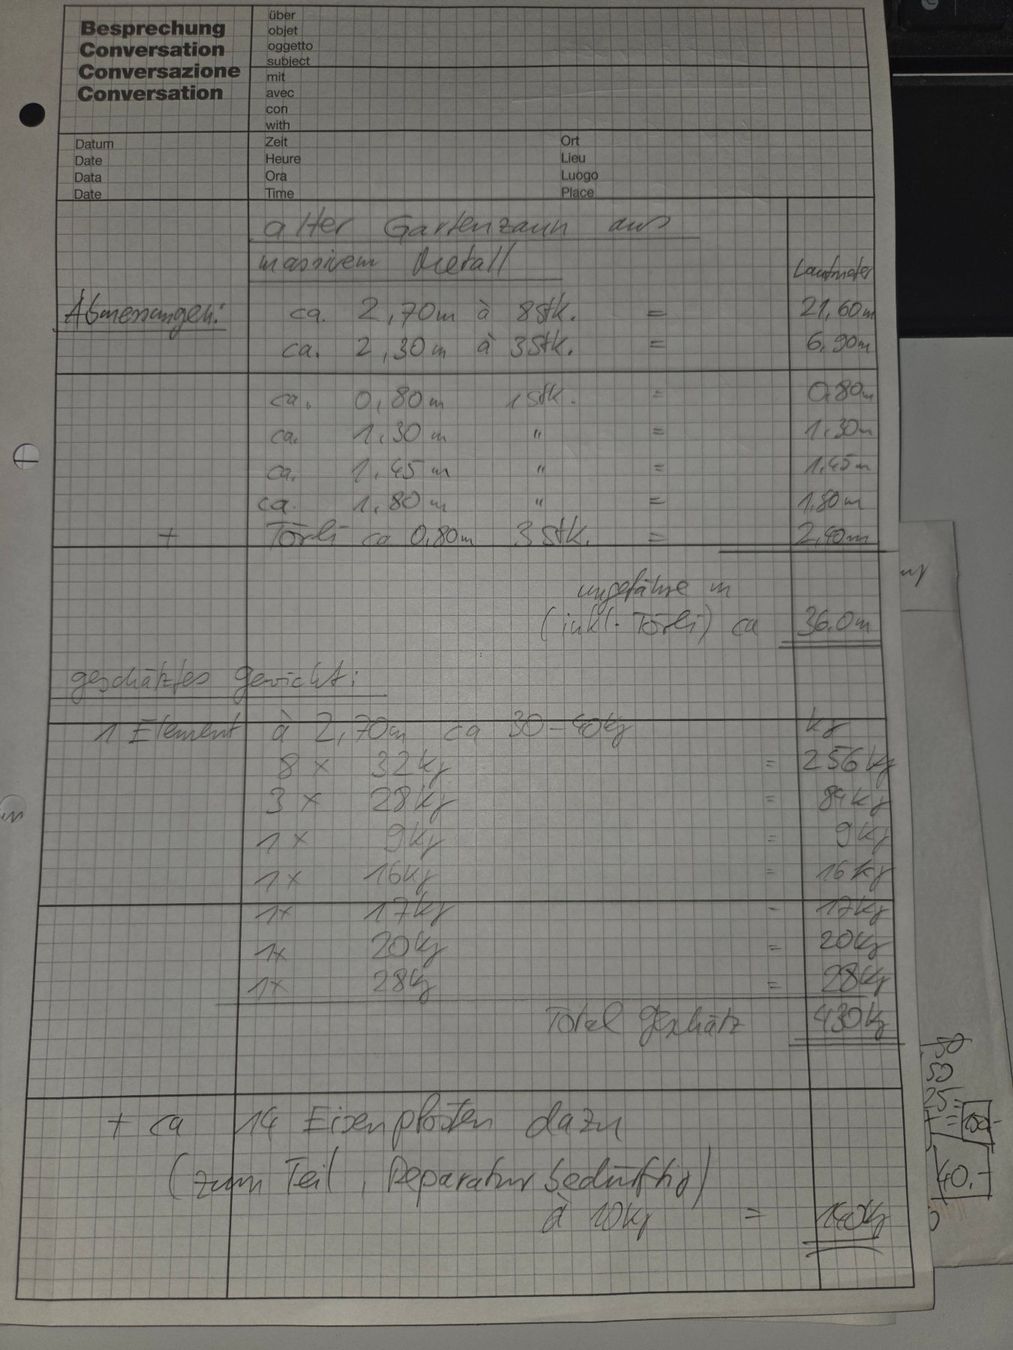 Besprechung
Conversation
Conversazione
Conversation
über
objet
oggetto
subject
mit
avec
con
with
Datum
Date
Data
Date
Zeit
Heure
Ora
Time
Ort
Lieu
Luogo
Place
alter Gartenzaun aus
massivem Metall
Laufmeter
Abmessungen: ca. 2,70m à 8stk. = 21,60m
ca. 2,30m à 3Stk. = 6,90m
ca. 0,80m 1Stk. = 0,80m
ca. 1,30m " = 1,30m
ca. 1,45m " = 1,45m
ca. 1,80m " = 1,80m
+ Törli ca 0,80m 3Stk. = 2,40m
ungefähre m
(inkl. Törli) ca 36.0m
geschätztes Gewicht:
1 Element à 2,70m ca 30-40kg kg
8 x 32kg = 256kg
3 x 28kg = 84kg
1 x 9kg = 9kg
1x 16kg = 16kg
1x 17kg - 17kg
1x 20kg = 20kg
1x 28kg = 28kg
Total geschätz 430kg
+ ca 14 Eisenpfosten dazu
(zum Teil, Reparatur bedürftig)
à 10kg = 140kg
50
25
40.-